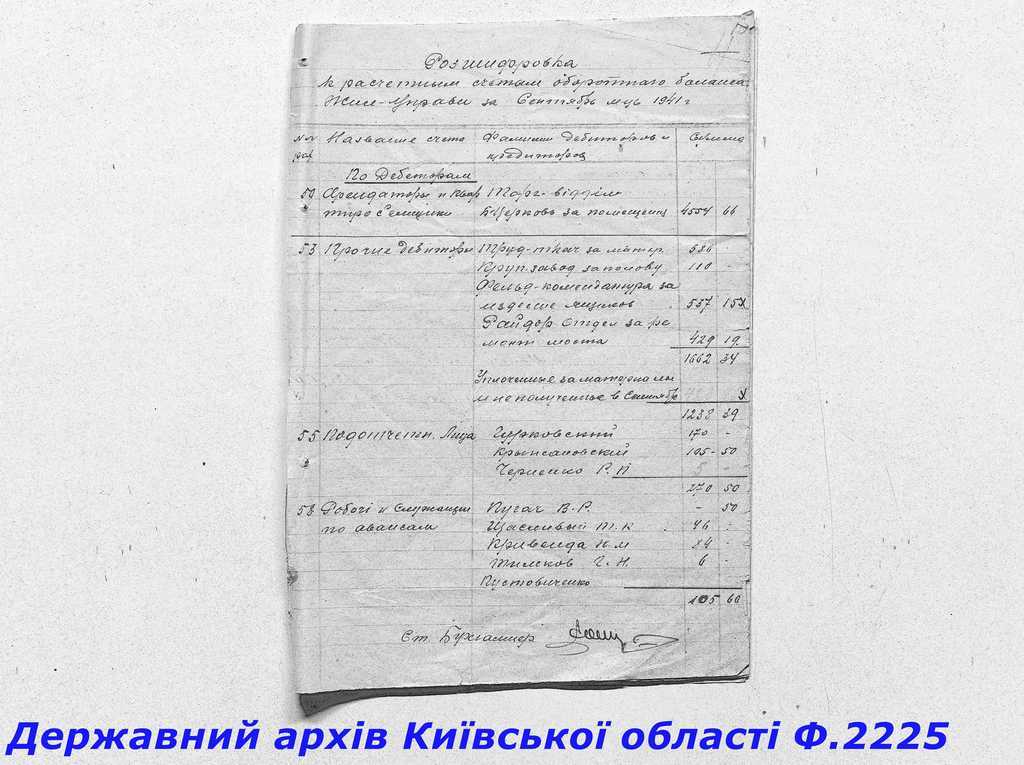 Розшифоровка
к расчетным счетам оборотнаго баланса
Жил-Управи за Сентябрь м-ць 1941 г
№№ Название счета Фамилии дебиторов и Сумма
кредиторов
По Дебеторам
50 Арендаторы и квар Торг-відділ
тиро с'емщики Б.Церковь за помещени 4554 66
53 Прочие девиторы Труд-ткач за матер. 536 -
Круп.завод за полову 110 -
Фельд-комендатура за
изделие ящиков 557 15
Райдор Отдел за ре
монт моста 429 19
1662 34
Уплоченные за материалы
и не полученные в Сентябр
1238 39
55 Подотчетн. Лица Чурковский 170 -
Крынсановский 105-50
Черненко Р. П 5 -
270 50
58 Робочі и Служащии Пугач В.Р. - 50
по авансам Щасливый Т.К 46 -
Кривенда Н.М 24 -
Г.Н. 6 -
Пустовиченко
105 60
Ст. Бухгалтер
Державний архів Київської області Ф.2225